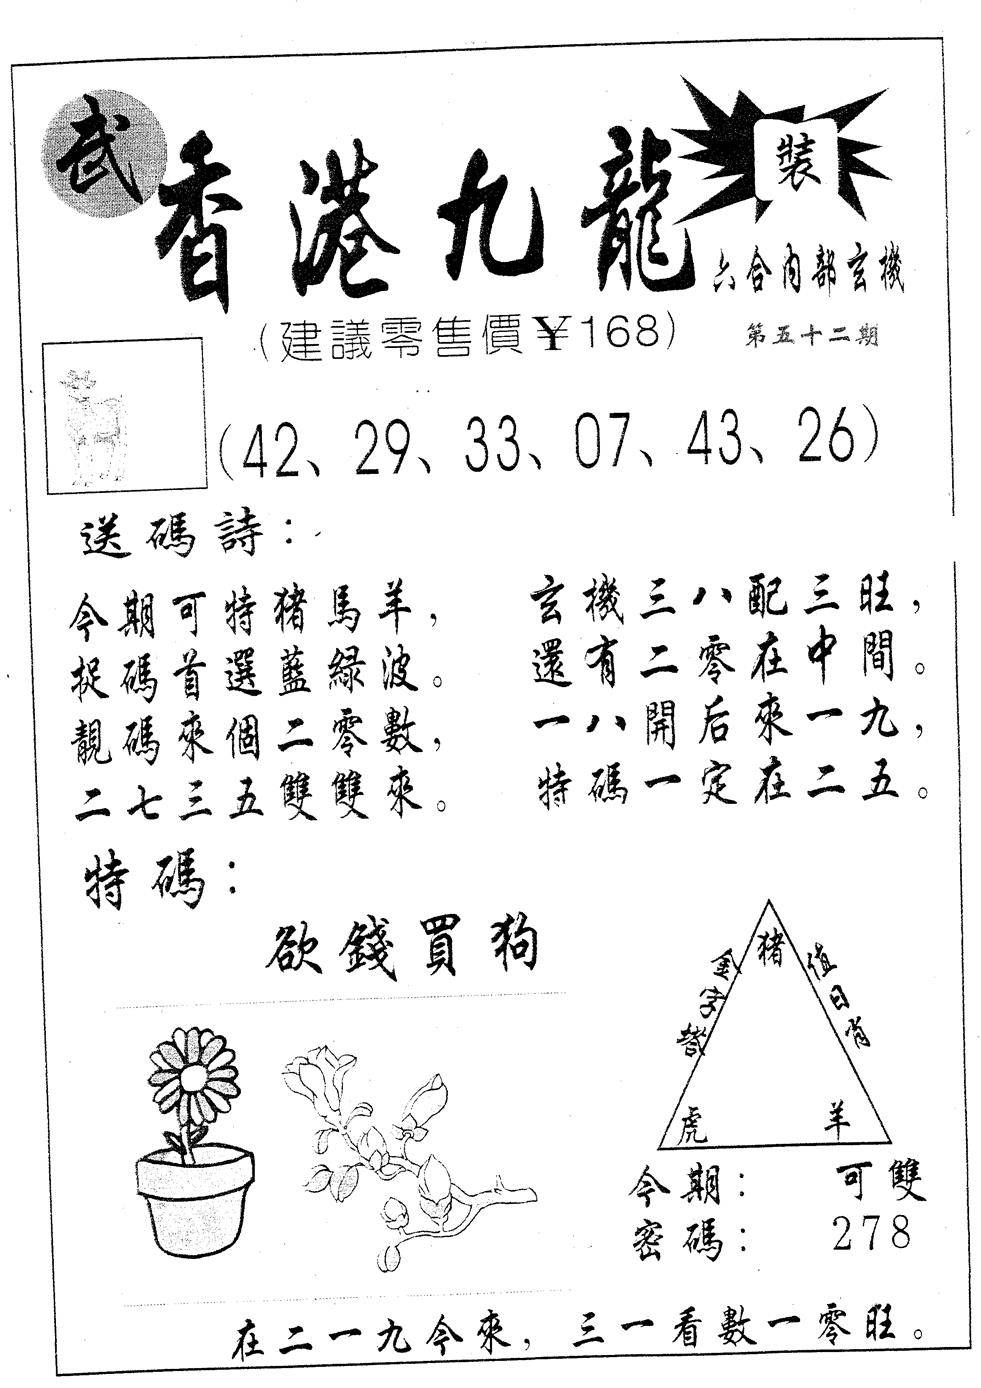 武
香港九龍
裝
六合内部玄機
(建議零售價¥168)
第五十二期
(42、29、33、07、43、26)
送碼詩：
今期可特猪馬羊，
捉碼首選藍綠波。
靚碼來個二零數，
二七三五雙雙來。
玄機三八配三旺，
還有二零在中間。
一八開后來一九，
特碼一定在二五。
特碼：
欲錢買狗
金字
猪
值日肖
虎
羊
今期：可雙
密碼：278
在二一九今來，三一看數一零旺。